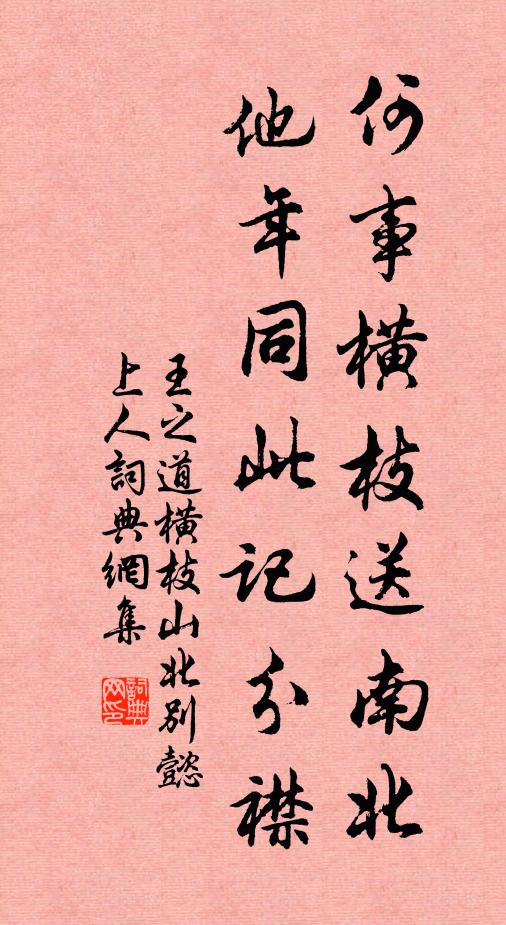 何事橫枝送南北
他年同此記分襟
王之道橫枝山北別懿
上人詞典網集
詞典網印